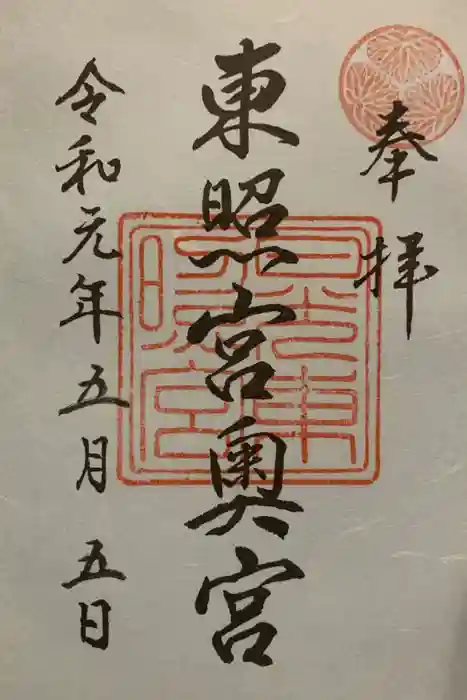 奉拝
東照宮奥宮
日光東照宮
令和元年五月五日